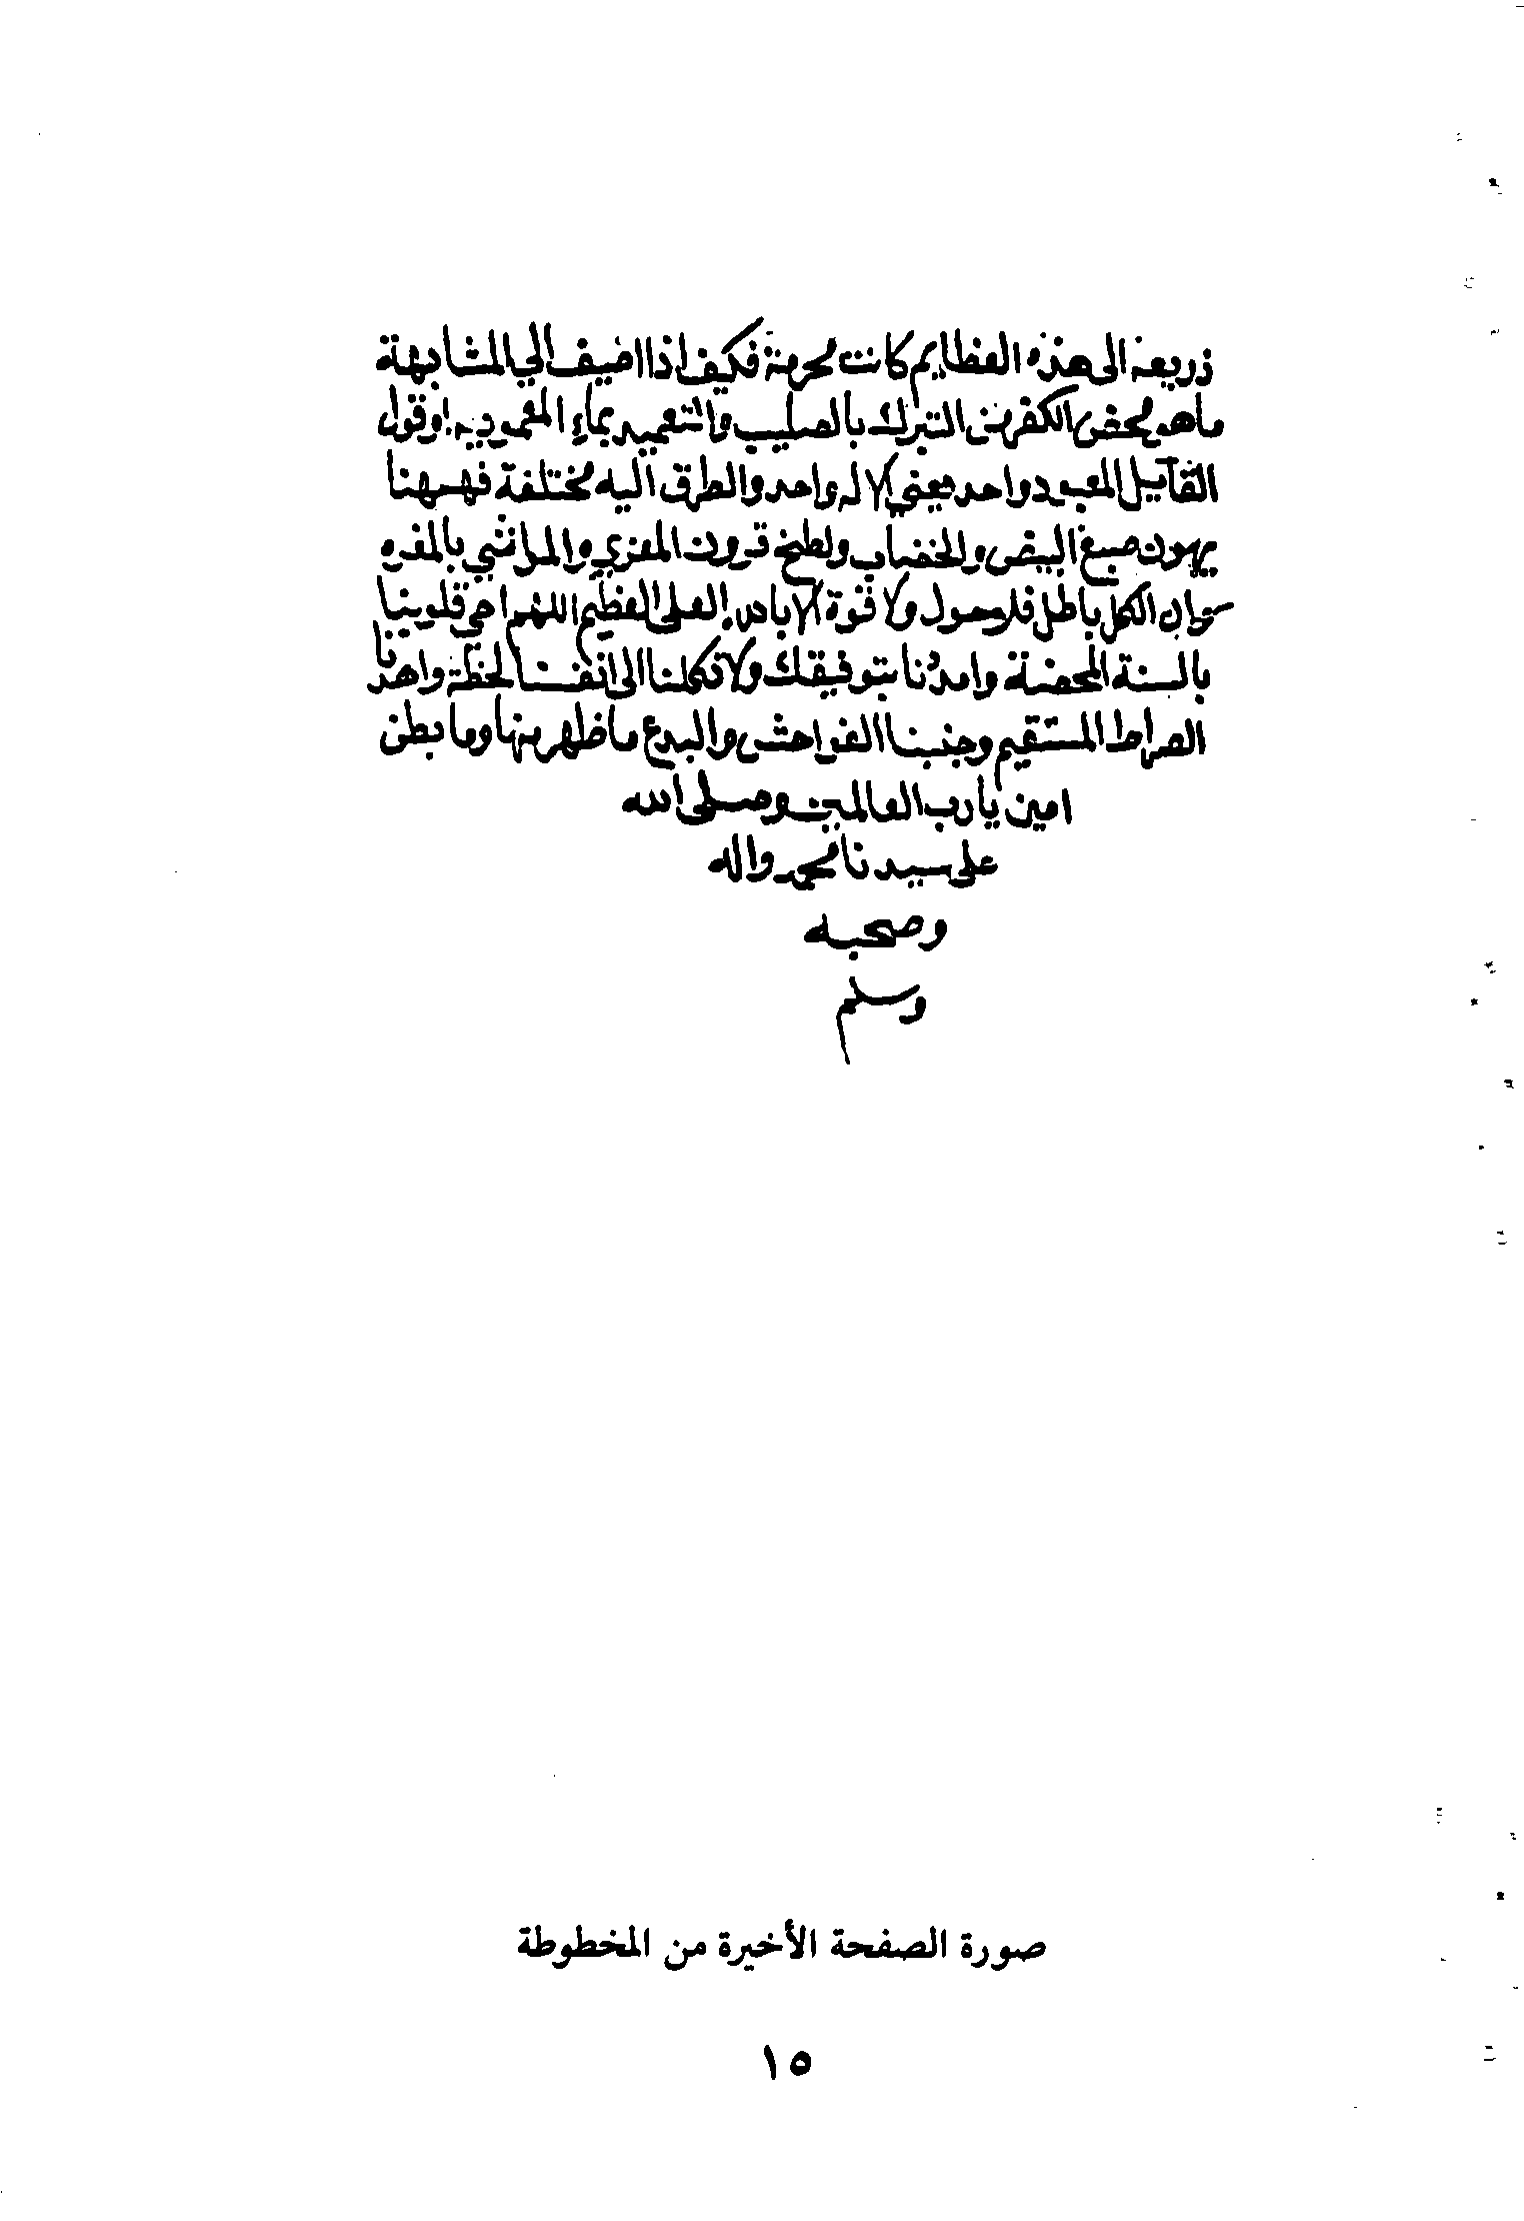 ذريعة الى هذه العظايم كانت محرمة فكيف اذا اضيف الي المشابهة
ما هو محض الكفر من التبرك بالصليب والتعميد بماء المعمودية او قول
القآيل المعبود واحد يعني الاله واحد والطرق اليه مختلفة فههنا
يهون صبغ البيض والخضاب ولطخ قرون المعزي والمواشي بالمغره
وان الكل باطل فلا حول ولا قوة الا بالله العلى العظيم اللهم احي قلوبنا
بالسنة المحضة وامدنا بتوفيقك ولا تكلنا الى انفسنا لحظة واهدنا
الصراط المستقيم وجنبنا الفواحش والبدع ما ظهر منها وما بطن
امين يا رب العالمين وصلى الله
على سيدنا محمد واله
وصحبه
وسلم
صورة الصفحة الأخيرة من المخطوطة
١٥